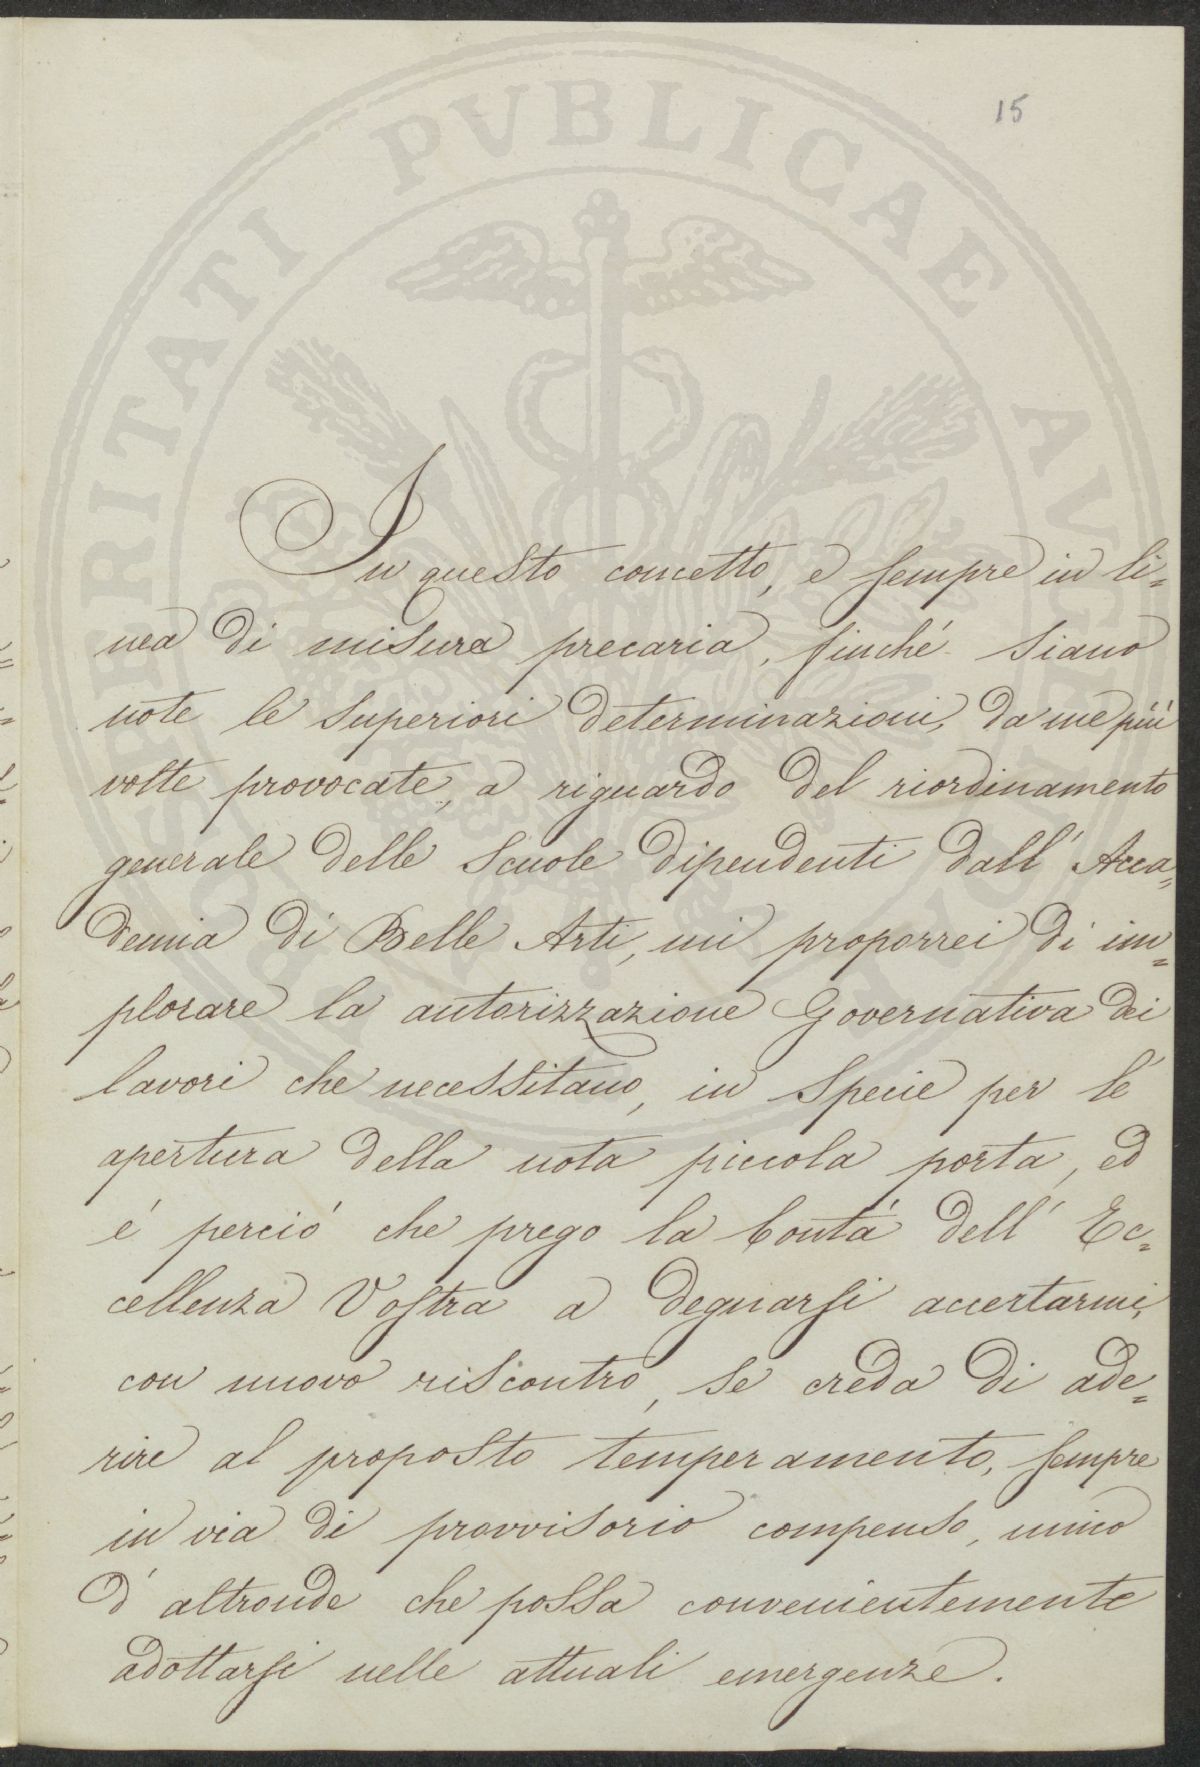 15
PROSPERITATI PVBLICAE AVGENDAE
In questo concetto, e sempre in li=
nea di misura precaria, finché siano
note le superiori determinazioni, da me più
volte provocate, a riguardo del riordinamento
generale delle Scuole dipendenti dall' Acca=
demia di Belle Arti, mi proporrei di im=
plorare la autorizzazione Governativa dei
lavori che necessitano, in specie per l'
apertura della nota piccola porta, ed
é perció che prego la bontá dell' Ec=
cellenza Vostra a degnarsi accertarmi,
con nuovo riscontro, se creda di ade=
rire al proposto temperamento, sempre
in via di provvisorio compenso, unico
d' altronde che possa convenientemente
adottarsi nelle attuali emergenze.